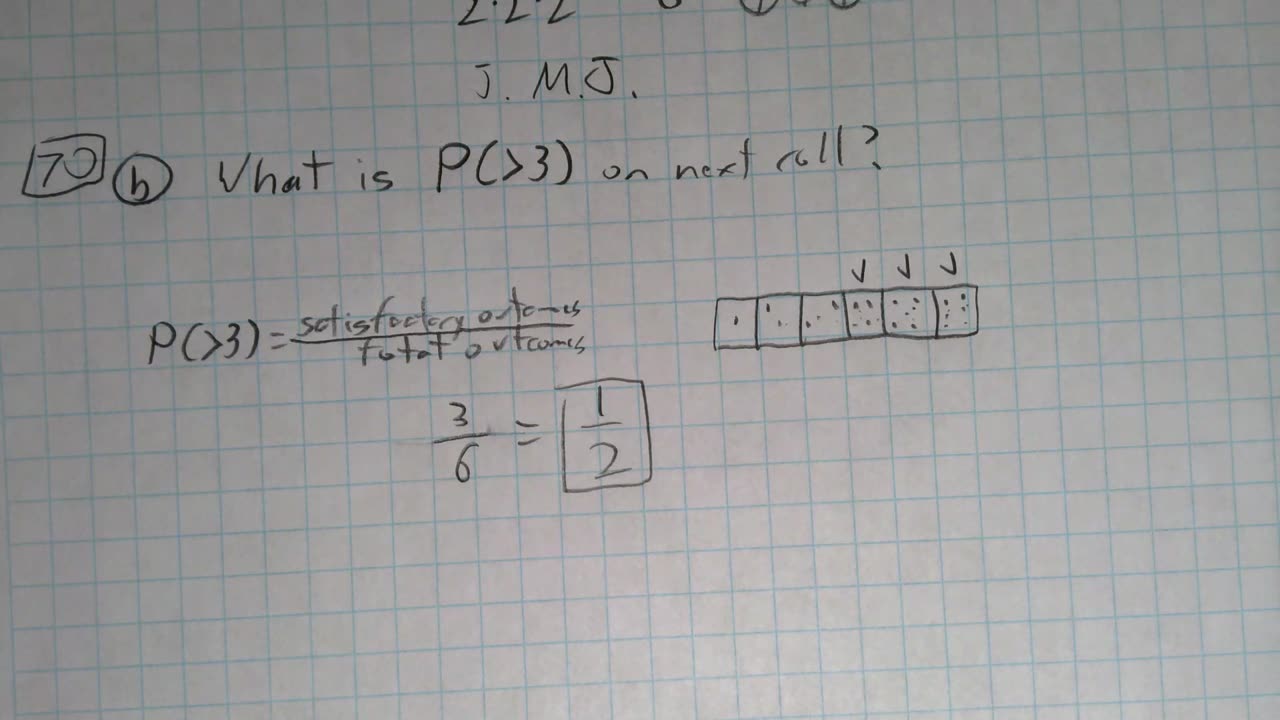 2·2·2
J. M.J.
70 b What is P(>3) on next roll?
P(>3) = satisfactory outcomes
total outcomes
3
6
=
1
2